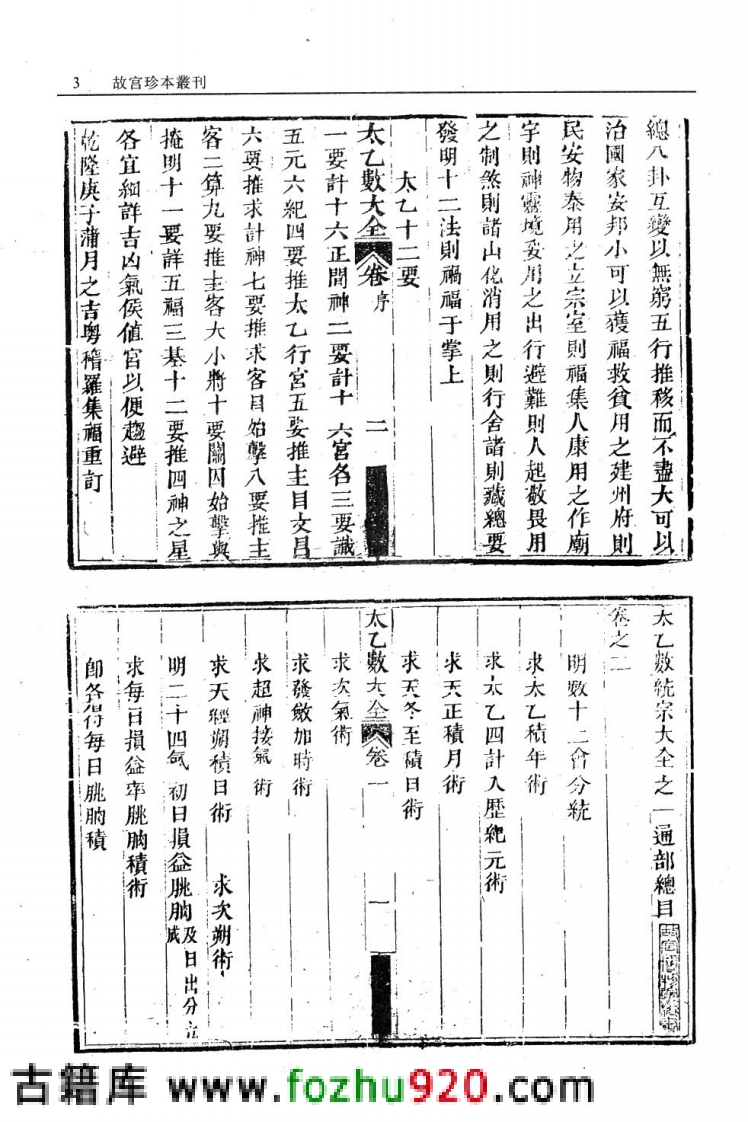 3 故宫珍本叢刊
總八卦互變以無窮五行推移而不盡大可以
治國家安邦小可以獲福救貧用之建州府則
民安物泰用之立宗室則福集人康用之作廟
宇則神靈境妥用之出行避難則人起敬畏用
之制煞則諸山化消用之則行舍諸則藏總要
發明十二法則禍福于掌上
太乙十二要
太乙數大全 卷序 二
一要計十六正間神二要計十六宮各三要識
五元六紀四要推太乙行宮五要推主目文昌
六要推求計神七要推求客目始擊八要推主
客二算九要推主客大小將十要關囚始擊與
掩明十一要詳五福三基十二要推四神之星
各宜細詳吉凶氣侯值宮以便趨避
乾隆庚子蒲月之吉粤稽羅集福重訂
太乙數統宗大全之一通部總目
卷之一
明數十二會分統
求太乙積年術
求太乙四計入歷紀元術
求天正積月術
求天冬至積日術
太乙數大全 卷一 一
求次氣術
求發斂加時術
求超神接氣術
求天經朔積日術 求次朔術
明二十四氣初日損益朓朒及日出分立成
求每日損益率朓朒積術
即各得每日朓朒積
古籍库 www.fozhu920.com